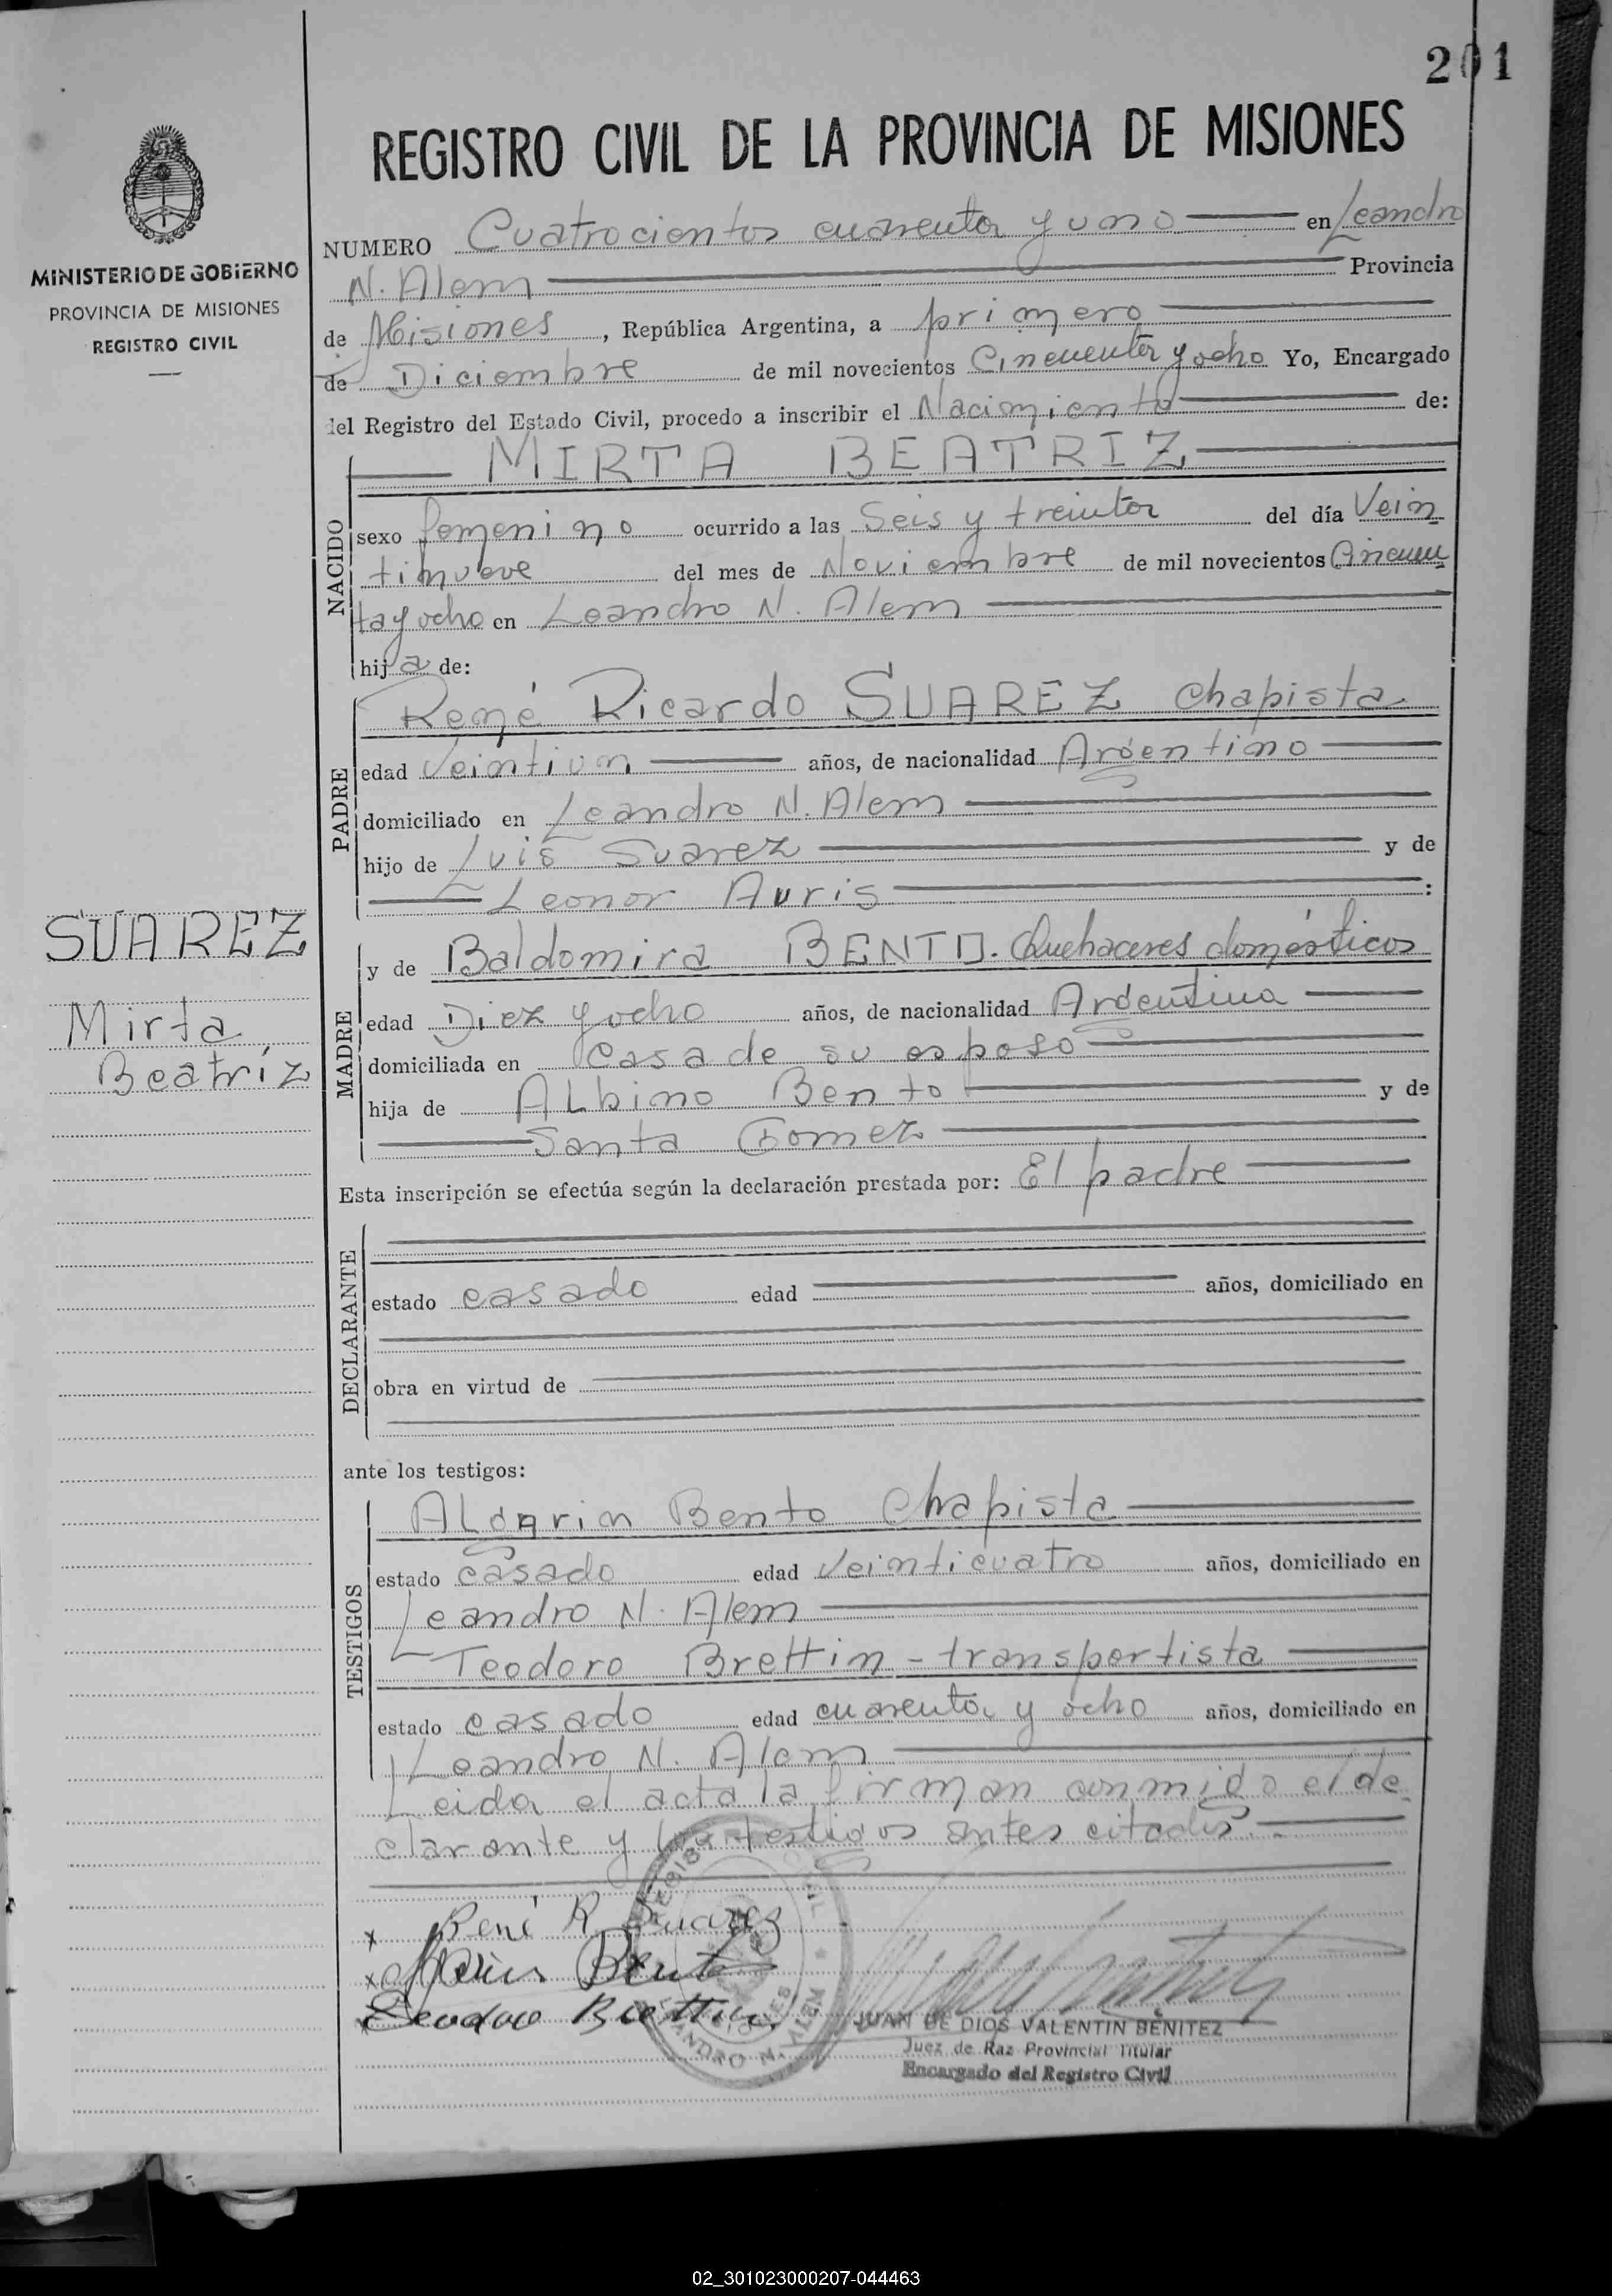 201
REGISTRO CIVIL DE LA PROVINCIA DE MISIONES
MINISTERIO DE GOBIERNO
PROVINCIA DE MISIONES
REGISTRO CIVIL
NUMERO Cuatrocientos cuarenta y uno en Leandro
N. Alem Provincia
de Misiones, República Argentina, a primero
de Diciembre de mil novecientos Cincuenta y ocho Yo, Encargado
del Registro del Estado Civil, procedo a inscribir el Nacimiento de:
MIRTA BEATRIZ
NACIDO
sexo femenino ocurrido a las Seis y treinta del día Vein
tinueve del mes de Noviembre de mil novecientos Cincuen
ta y ocho en Leandro N. Alem
hija de:
PADRE
René Ricardo SUAREZ Chapista
edad Veintiun años, de nacionalidad Argentino
domiciliado en Leandro N. Alem
hijo de Luis Suarez y de
Leonor Auris:
SUAREZ
Mirta
Beatríz
MADRE
y de Baldomira BENTO. Quehaceres domésticos
edad Diez y ocho años, de nacionalidad Argentina
domiciliada en Casa de su esposo
hija de Albino Bento y de
Santa Gomez
Esta inscripción se efectúa según la declaración prestada por: El padre
DECLARANTE
estado casado edad años, domiciliado en
obra en virtud de
ante los testigos:
TESTIGOS
Bento Chapista
estado casado edad Veinticuatro años, domiciliado en
Leandro N. Alem
Teodoro Brettin - transportista
estado casado edad cuarenta y ocho años, domiciliado en
Leandro N. Alem
Leida el acta la firman conmigo el de
clarante y los testigos antes citados.
x René R. Suarez
x Bento
Teodoro Brettin
LEANDRO N. ALEM
JUAN DE DIOS VALENTIN BENITEZ
Juez de Paz Provincial Titular
Encargado del Registro Civil
02_301023000207-044463